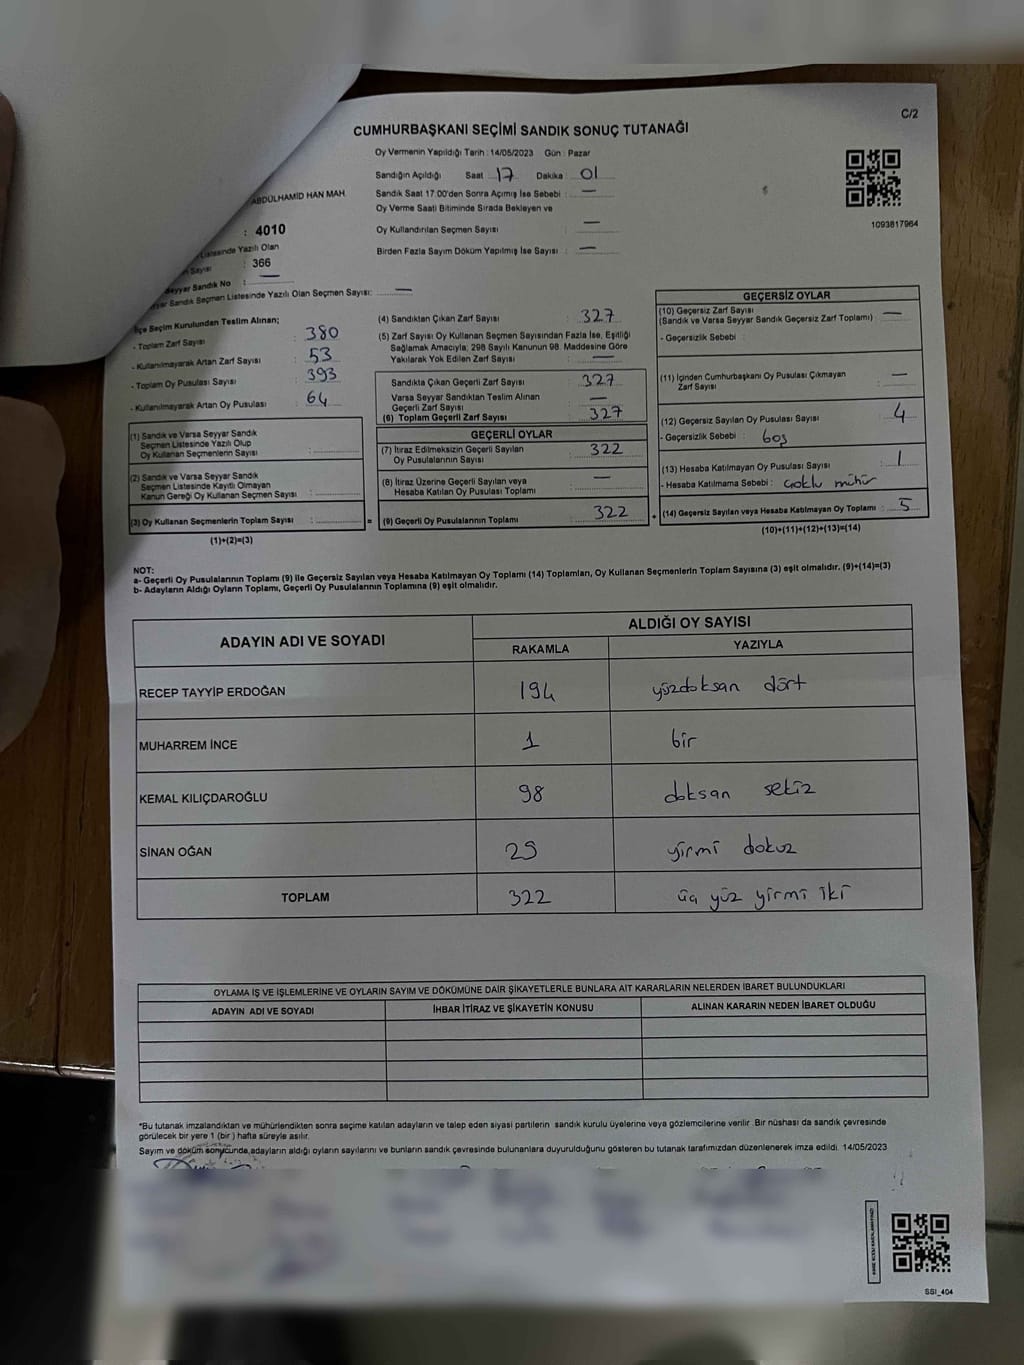 C/2
CUMHURBAŞKANI SEÇİMİ SANDIK SONUÇ TUTANAĞI
Oy Vermenin Yapıldığı Tarih : 14/05/2023 Gün : Pazar
Sandığın Açıldığı Saat : 17 Dakika : 01
Sandık Saat 17:00'den Sonra Açmış İse Sebebi : —
Oy Verme Saati Bitiminde Sırada Bekleyen ve
Oy Kullandırılan Seçmen Sayısı : —
Birden Fazla Sayım Döküm Yapılmış İse Sayısı : —
1093817964
ABDÜLHAMİD HAN MAH.
: 4010
Listesinde Yazılı Olan
Sayısı : 366
Seyyar Sandık No : —
Seyyar Sandık Seçmen Listesinde Yazılı Olan Seçmen Sayısı: —
İlçe Seçim Kurulundan Teslim Alınan;
- Toplam Zarf Sayısı : 380
- Kullanılmayarak Artan Zarf Sayısı : 53
- Toplam Oy Pusulası Sayısı : 393
- Kullanılmayarak Artan Oy Pusulası : 64
(1) Sandık ve Varsa Seyyar Sandık
Seçmen Listesinde Yazılı Olup
Oy Kullanan Seçmenlerin Sayısı :
(2) Sandık ve Varsa Seyyar Sandık
Seçmen Listesinde Kayıtlı Olmayan
Kanun Gereği Oy Kullanan Seçmen Sayısı :
(3) Oy Kullanan Seçmenlerin Toplam Sayısı : =
(1)+(2)=(3)
(4) Sandıktan Çıkan Zarf Sayısı : 327
(5) Zarf Sayısı Oy Kullanan Seçmen Sayısından Fazla İse, Eşitliği
Sağlamak Amacıyla; 298 Sayılı Kanunun 98. Maddesine Göre
Yakılarak Yok Edilen Zarf Sayısı : —
Sandıkta Çıkan Geçerli Zarf Sayısı : 327
Varsa Seyyar Sandıktan Teslim Alınan
Geçerli Zarf Sayısı : —
(6) Toplam Geçerli Zarf Sayısı : 327
GEÇERLİ OYLAR
(7) İtiraz Edilmeksizin Geçerli Sayılan
Oy Pusulalarının Sayısı : 322
(8) İtiraz Üzerine Geçerli Sayılan veya
Hesaba Katılan Oy Pusulası Toplamı : —
(9) Geçerli Oy Pusulalarının Toplamı : 322 +
GEÇERSİZ OYLAR
(10) Geçersiz Zarf Sayısı
(Sandık ve Varsa Seyyar Sandık Geçersiz Zarf Toplamı) : —
- Geçersizlik Sebebi :
(11) İçinden Cumhurbaşkanı Oy Pusulası Çıkmayan
Zarf Sayısı : —
(12) Geçersiz Sayılan Oy Pusulası Sayısı : 4
- Geçersizlik Sebebi : boş
(13) Hesaba Katılmayan Oy Pusulası Sayısı : 1
- Hesaba Katılmama Sebebi : çoklu mühür
(14) Geçersiz Sayılan veya Hesaba Katılmayan Oy Toplamı : 5
(10)+(11)+(12)+(13)=(14)
NOT:
a- Geçerli Oy Pusulalarının Toplamı (9) ile Geçersiz Sayılan veya Hesaba Katılmayan Oy Toplamı (14) Toplamları, Oy Kullanan Seçmenlerin Toplam Sayısına (3) eşit olmalıdır. (9)+(14)=(3)
b- Adayların Aldığı Oyların Toplamı, Geçerli Oy Pusulalarının Toplamına (9) eşit olmalıdır.
ADAYIN ADI VE SOYADI
ALDIĞI OY SAYISI
RAKAMLA YAZIYLA
RECEP TAYYİP ERDOĞAN 194 yüzdoksan dört
MUHARREM İNCE 1 bir
KEMAL KILIÇDAROĞLU 98 doksan sekiz
SİNAN OĞAN 29 yirmi dokuz
TOPLAM 322 üç yüz yirmi iki
OYLAMA İŞ VE İŞLEMLERİNE VE OYLARIN SAYIM VE DÖKÜMÜNE DAİR ŞİKAYETLERLE BUNLARA AİT KARARLARIN NELERDEN İBARET BULUNDUKLARI
ADAYIN ADI VE SOYADI İHBAR İTİRAZ VE ŞİKAYETİN KONUSU ALINAN KARARIN NEDEN İBARET OLDUĞU
*Bu tutanak imzalandıktan ve mühürlendikten sonra seçime katılan adayların ve talep eden siyasi partilerin sandık kurulu üyelerine veya gözlemcilerine verilir. Bir nüshası da sandık çevresinde
görülecek bir yere 1 (bir ) hafta süreyle asılır.
Sayım ve döküm sonucunda,adayların aldığı oyların sayılarını ve bunların sandık çevresinde bulunanlara duyurulduğunu gösteren bu tutanak tarafımızdan düzenlenerek imza edildi. 14/05/2023
SSI_404